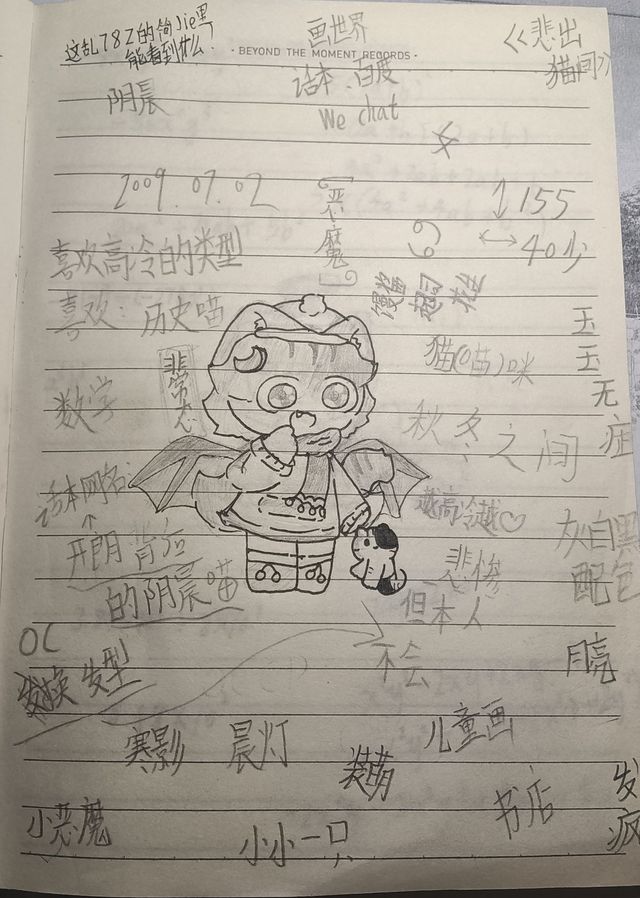 这乱78Z的句Jie里
能看到什么？
画世界
· BEYOND THE MOMENT RECORDS ·
《悲出
猫间》
阴晨
话本、百度
We chat
2009.07.02
【恶魔】
69
155
40少
喜欢高冷的类型
喜欢：历史喵
猫(喵)咪
玉玉无症
数学
非常态
秋冬之间
话本网名：
越高冷越♡
灰白黑
配色
开朗背后
的阴晨喵
悲惨
但本人
不会
OC
发型
月亮
寒影
晨灯
装萌
儿童画
小恶魔
小小一只
书店
发疯